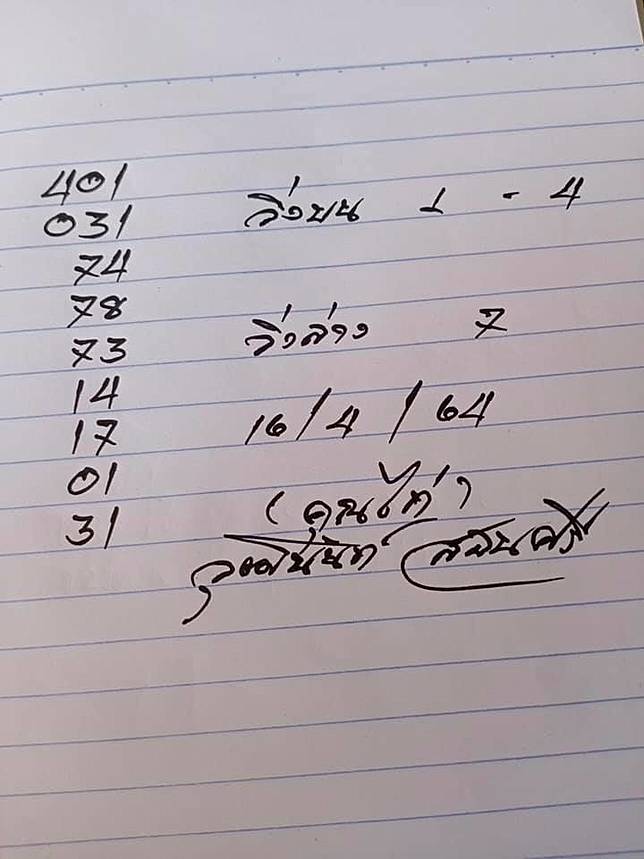 401
031
วิ่งบน 1 - 4
74
78
73
วิ่งล่าง 7
14
17
16/4/64
01
31
(คุณไก่)